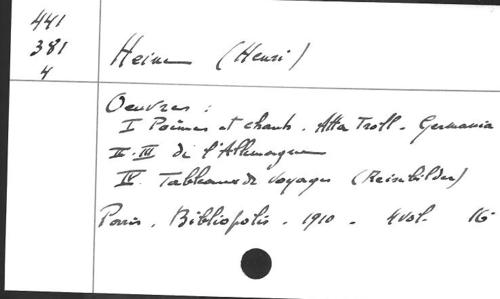 441
381
4
Heine (Henri)
Oeuvres :
I Poèmes et chants. Atta Troll. Germania
II-III de l'Allemagne
IV. Tableaux de voyages (Reisebilder)
Paris. Bibliopolis. 1910. 4 vol. 16